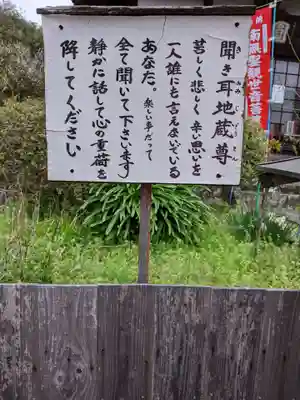 聞き耳地蔵尊
苦しく悲しく辛い思いを
一人誰にも言えないでいる
あなた。楽しい事だって
全て聞いて下さいます
静かに話して心の重荷を
降してください.
南無聖観世音菩